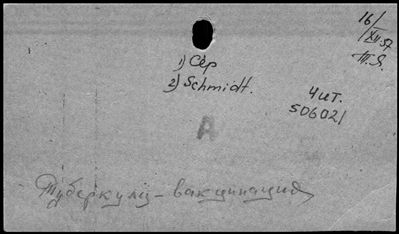 16/
XII 57
1) Сер
2) Schmidt.
Чит.
506021
A
Туберкуліз - вакцинация